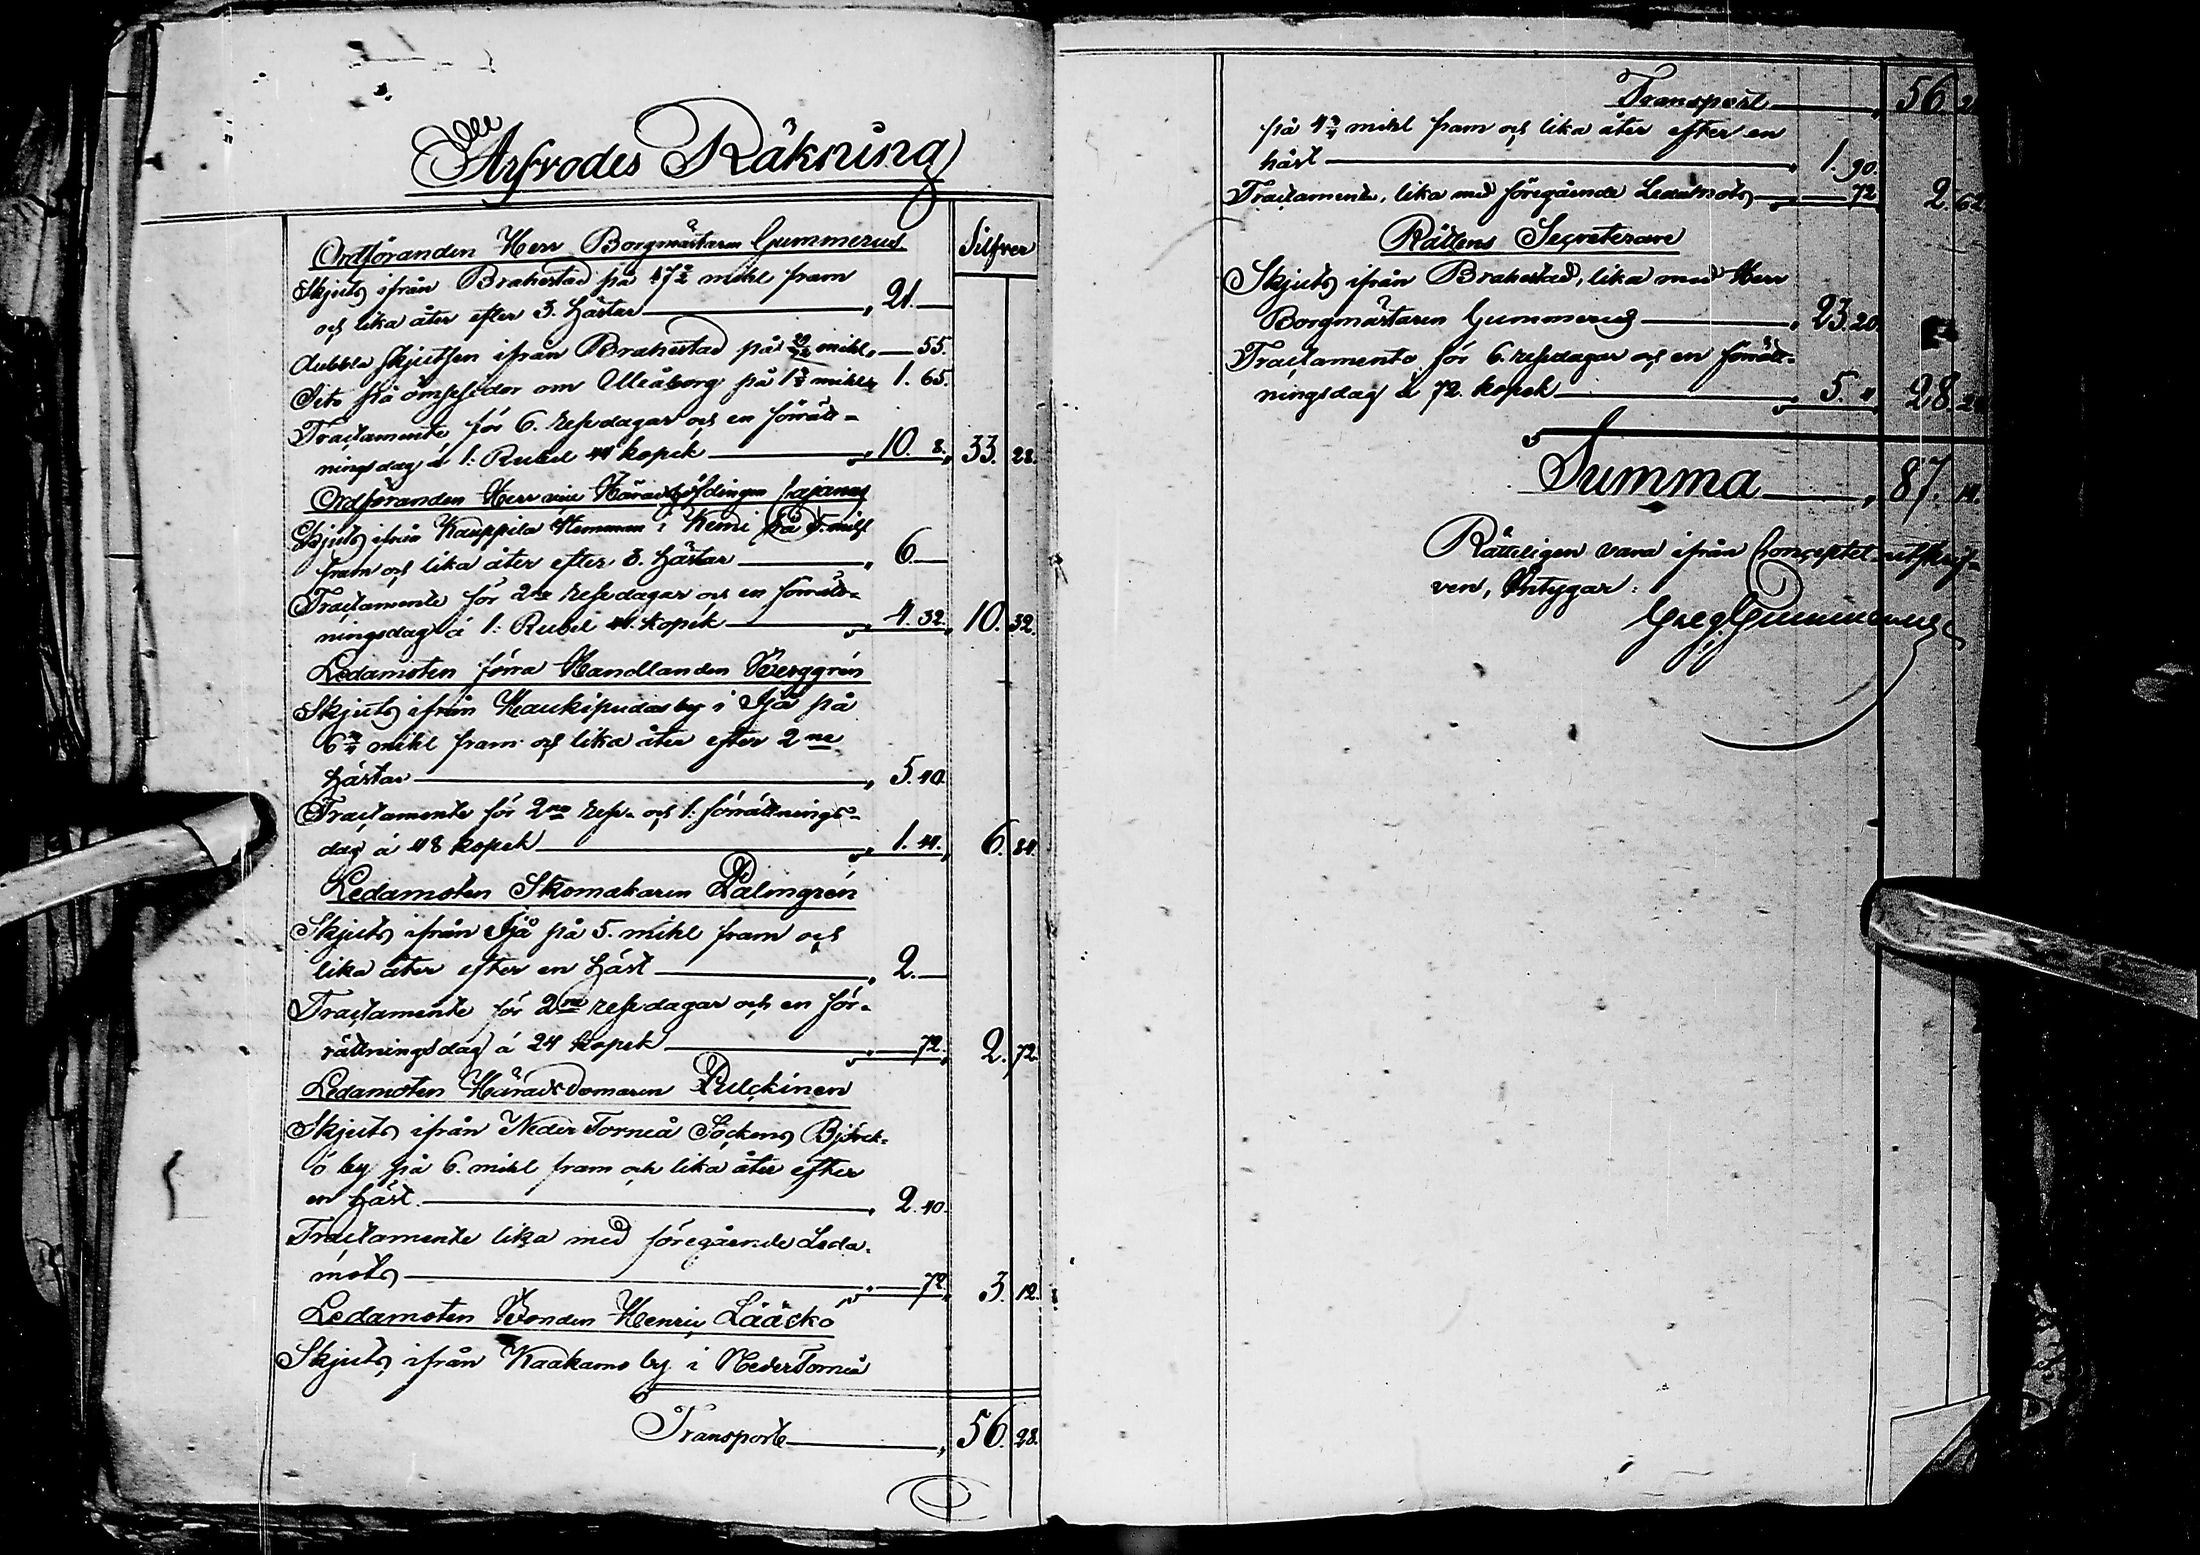 Arfvodes Räkning
Silfver
Ordföranden Herr Borgmästaren Gummerus
Skjuts ifrån Brahestad på 17½ mihl fram
och lika åter efter 3. hästar 21.
dubbla skjutsen ifrån Brahestad på mihl 55.
Dito på ömse sidor om Uleåborg på 1 mihl 1. 65.
Tractamente för 6. resedagar och en förrätt-
ningsdag á 1: Rubel 44 kopek 10. 8. 33. 28.
Ordföranden Herr vice Häradshöfdingen Cajanus
Skjuts ifrån Kauppila Hemman i Kemi på 5. mihl
fram och lika åter efter 3. hästar 6.
Tractamente för 2ne resedagar och en förrätt-
ningsdag á 1: Rubel 44. kopek 4. 32. 10. 32.
Ledamoten förra Handlanden Berggrén
Skjuts ifrån Haukipudas by i Ijå på
6¾ mihl fram och lika åter efter 2ne
hästar 5. 40.
Tractamente för 2ne rese- och 1. förrättnings-
dag á 48 kopek 1. 44. 6. 84.
Ledamoten Skomakaren Palmgrén
Skjuts ifrån Ijå på 5. mihl fram och
lika åter efter en häst 2.
Tractamente för 2ne resedagar och en för-
rättningsdag á 24 kopek 72. 2. 72.
Ledamoten Häradsdomaren Pulckinen
Skjuts ifrån Neder Torneå Sockens Björck-
ö by på 6. mihl fram och lika åter efter
en häst. 2. 40.
Tractamente lika med föregående Leda-
mots 72. 3. 12.
Ledamoten Bonden Henric Lääckö
Skjuts ifrån Kaakamo by i Neder Torneå
Transport 56. 28.
Transport 56. 2
på 4¾ mihl fram och lika åter efter en
häst 1. 90.
Tractamente, lika med föregående Ledamots 72 2. 62
Rättens Secreterare
Skjuts ifrån Brahestad, lika med Herr
Borgmästaren Gummerus 23. 20.
Tractamente för 6. resedagar och en förrätt-
ningsdag á 72. kopek 5. " 28. 2
Summa 87. 1
Rätteligen vara ifrån Conceptet utskrif-
ven, intygar:
Greg. Gummerus